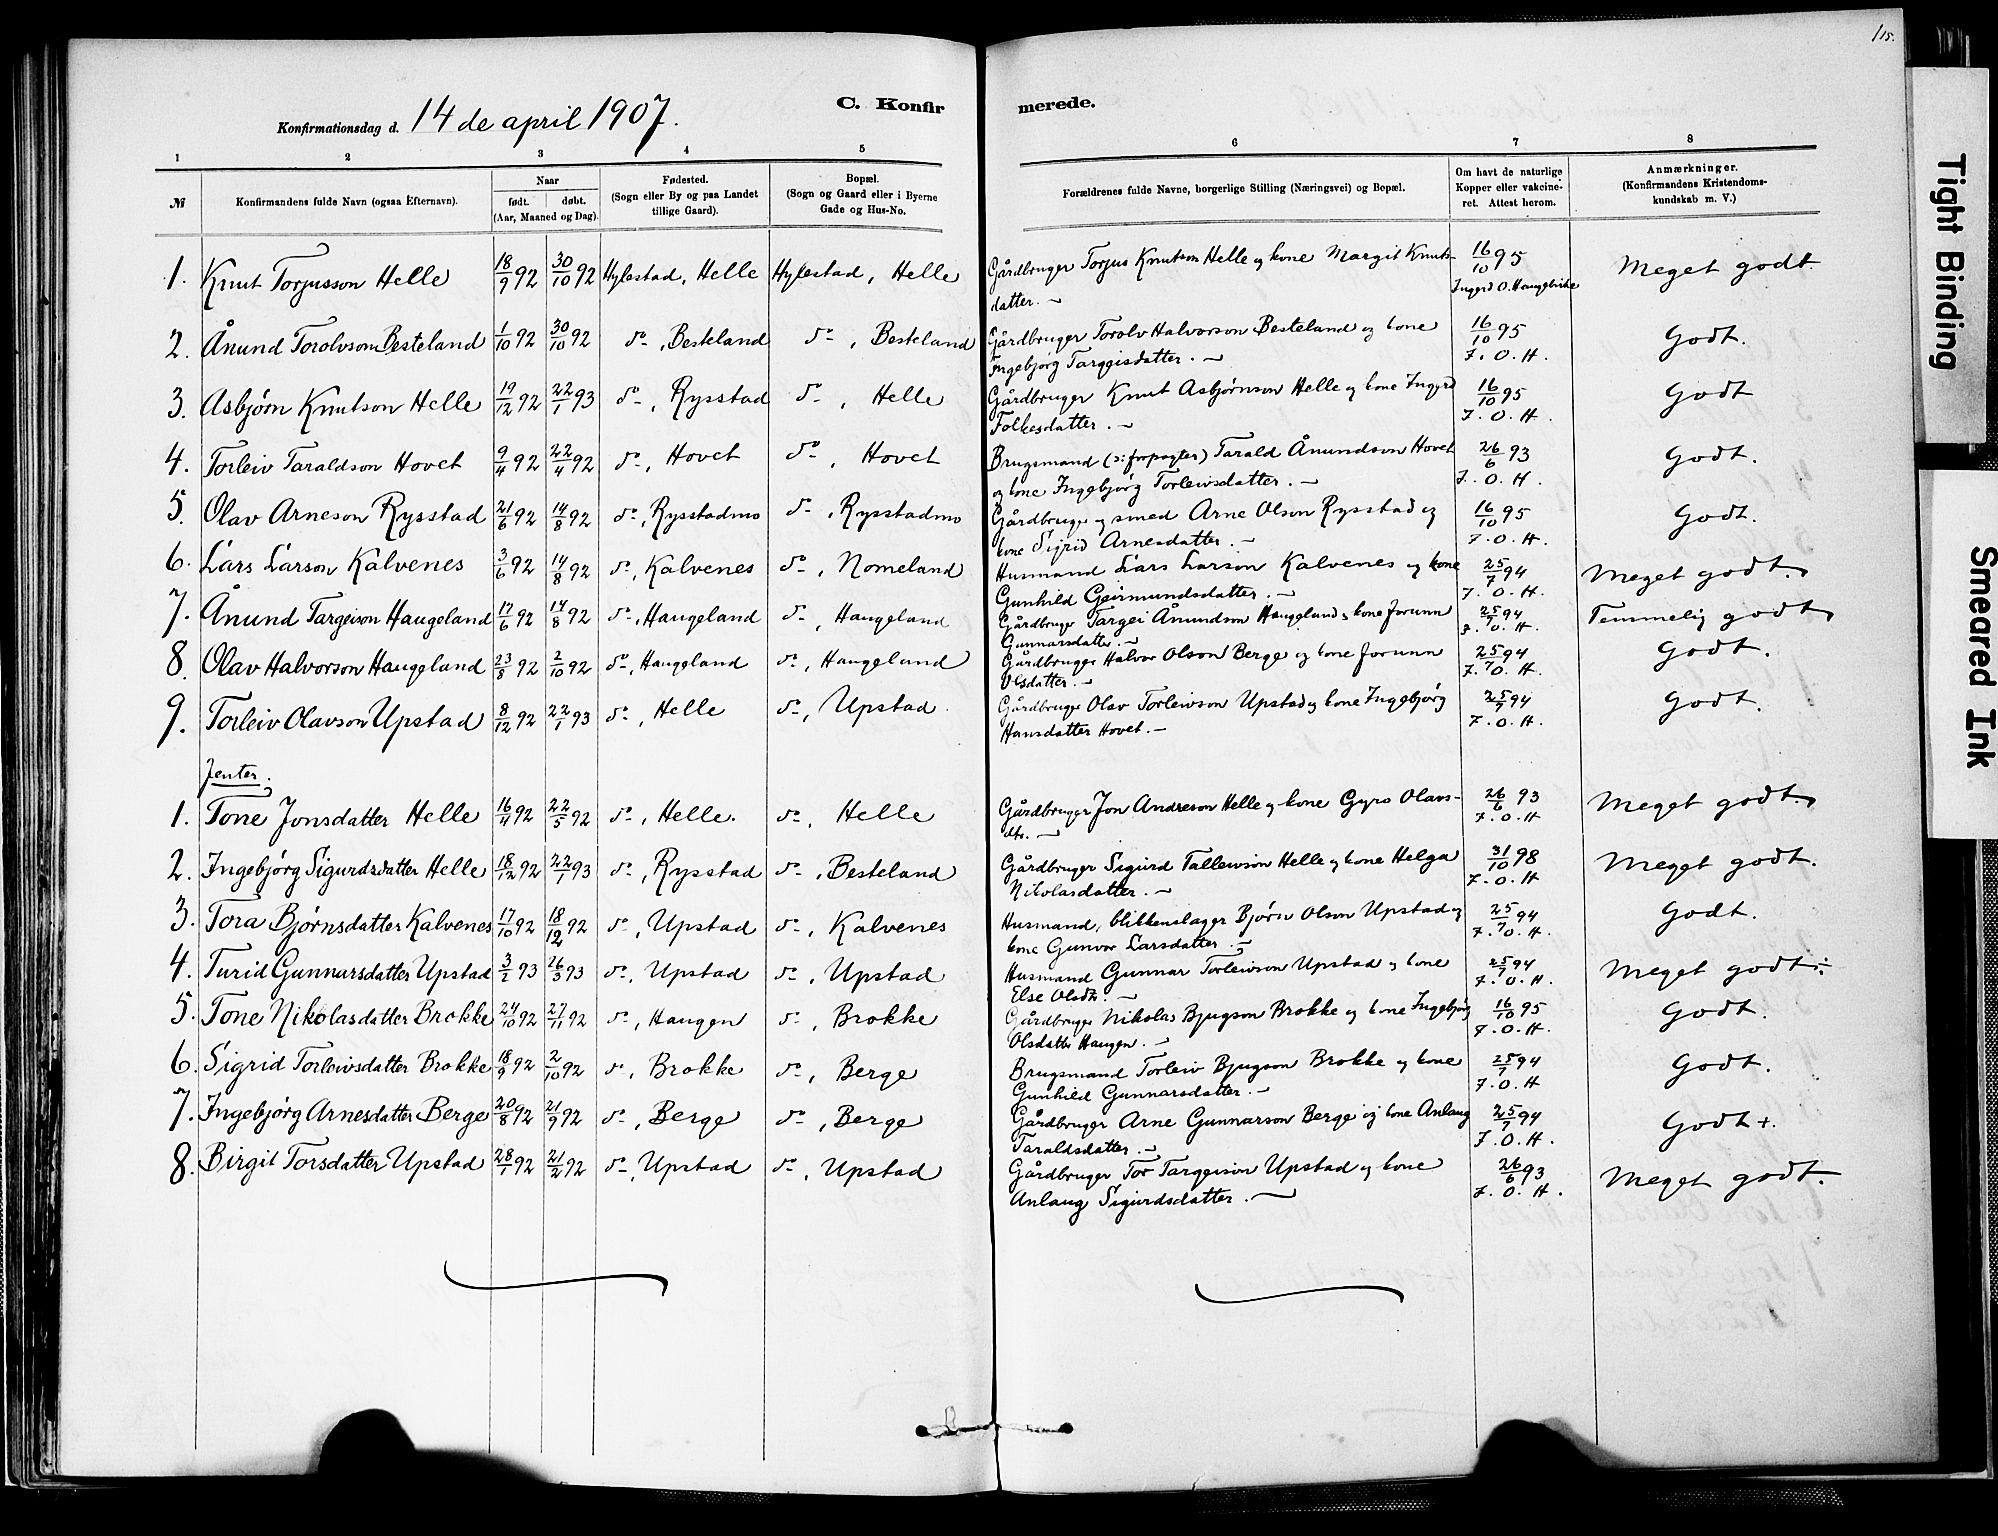 115.
C. Konfirmerede.
Konfirmationsdag d. 14de april 1907.
1 2 3 4 5 6 7 8
№ Konfirmandens fulde Navn (ogsaa Efternavn). Naar født. døbt. (Aar, Maaned og Dag). Fødested. (Sogn eller By og paa Landet tillige Gaard). Bopæl. (Sogn og Gaard eller i Byerne Gade og Hus-No. Forældrenes fulde Navne, borgerlige Stilling (Næringsvei) og Bopæl. Om havt de naturlige Kopper eller vakcineret. Attest herom. Anmærkninger. (Konfirmandens Kristendomskundskab m. V.)
1. Knut Torjusson Helle 18/9 92 30/10 92 Hylestad, Helle Hylestad, Helle Gårdbruger Torjus Knutson Helle og kone Margit Knuts- 16/10 95 Meget godt.
datter. — Ingerd O. Haugebirke
2. Ånund Torolvson Besteland 1/10 92 30/10 92 do, Besteland do, Besteland Gårdbruger Torolv Halvorson Besteland og kone 16/10 95 Godt.
Ingebjørg Targgisdatter. — 7. O. H.
3. Asbjørn Knutson Helle 19/12 92 22/1 93 do, Rysstad do, Helle Gårdbruger Knut Asbjørnson Helle og kone Ingerd 16/10 95 Godt
Folkesdatter. — 7. O. H.
4. Torleiv Taraldson Hovet 9/4 92 22/4 92 do, Hovet do, Hovet Brugsmand (ɔ: forpagter) Tarald Ånundson Hovet 26/6 93 Godt.
og kone Ingebjørg Torleivsdatter. — 7. O. H.
5. Olav Arneson Rysstad 21/6 92 14/8 92 do, Rysstadmo do, Rysstadmo Gårdbruger og smed Arne Olson Rysstad og 16/10 95 Godt.
kone Sigrid Arnesdatter. — 7. O. H.
6. Lars Larson Kalvenes 3/6 92 14/8 92 do, Kalvenes do, Nomeland Husmand Lars Larson Kalvenes og kone 25/7 94 Meget godt.
Gunhild Geirmundsdatter. — 7. O. H.
7. Ånund Targeison Haugeland 17/6 92 14/8 92 do, Haugeland do, Haugeland Gårdbruger Targei Ånundson Haugeland og kone Jorunn 25/7 94 Temmelig godt
Gunnarsdatter. — 7. O. H.
8. Olav Halvorson Haugeland 23/8 92 2/10 92 do, Haugeland do, Haugeland Gårdbruger Halvor Olson Berge og kone Jorunn 25/7 94 Godt.
Olsdatter. — 7. O. H.
9. Torleiv Olavson Upstad 8/12 92 22/1 93 do, Helle do, Upstad Gårdbruger Olav Torleivson Upstad og kone Ingebjørg 25/7 94 Godt.
Hansdatter Hovet. — 7. O. H.
Jenter.
1. Tone Jonsdatter Helle 16/4 92 22/5 92 do, Helle. do, Helle Gårdbruger Jon Andreson Helle og kone Gyro Olavs- 26/6 93 Meget godt.
dtr. — 7. O. H
2. Ingebjørg Sigurdsdatter Helle 18/12 92 22/1 93 do, Rysstad do, Besteland Gårdbruger Sigurd Talleivson Helle og kone Helga 31/10 98 Meget godt.
Nikolasdatter. — 7. O. H
3. Tora Bjørnsdatter Kalvenes 17/10 92 18/12 92 do, Upstad do, Kalvenes Husmand, blikkenslager Bjørn Olson Upstad og 25/7 94 Godt.
kone Gunvor Larsdatter. — 7. O. H.
4. Turid Gunnarsdatter Upstad 3/1 93 26/3 93 do, Upstad do, Upstad Husmand Gunnar Torleivson Upstad og kone 25/7 94 Meget godt ÷
Else Olsdtr. — 7. O. H.
5. Tone Nikolasdatter Brokke 24/10 92 27/11 92 do, Haugen do, Brokke Gårdbruger Nikolas Bjugson Brokke og kone Ingebjørg 16/10 95 Godt.
Olsdatter Haugen. — 7. O. H.
6. Sigrid Torleivsdatter Brokke 18/9 92 2/10 92 do, Brokke do, Berge Brugsmand Torleiv Bjugson Brokke og kone 25/7 94 Godt.
Gunhild Gunnarsdatter. — 7. O. H
7. Ingebjørg Arnesdatter Berge 20/8 92 21/9 92 do, Berge do, Berge Gårdbruger Arne Gunnarson Berge og kone Anlaug 25/7 94 Godt +.
Taraldsdatter. — 7. O. H.
8. Birgit Torsdatter Upstad 28/1 92 21/2 92 do, Upstad do, Upstad Gårdbruger Tor Targeison Upstad og kone 26/6 93 Meget godt.
Anlaug Sigurdsdatter. — 7. O. H.
Tight Binding
Smeared Ink